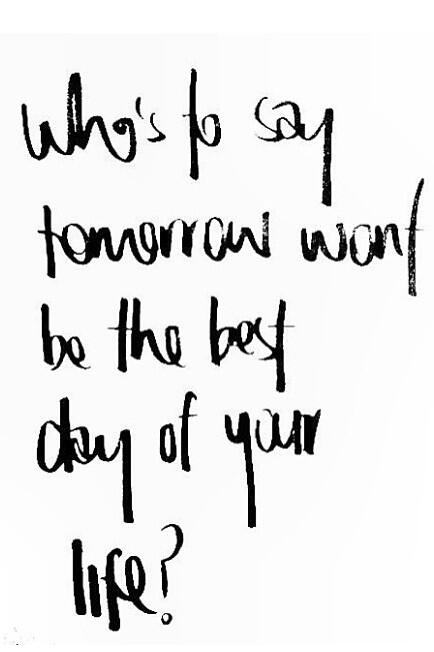 Who's to say
tomorrow wont
be the best
day of your
life?